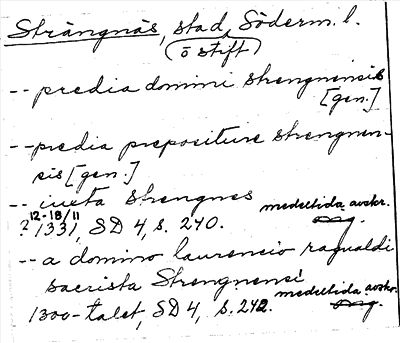 Strängnäs, stad, Söderm. l.
(ö stift)
-- predia domini strengnensis
[gen.]
-- predia prepositure strengnen-
sis [gen.]
-- iuxta Strengnes medeltida avskr.
12-18/11
? 1331, SD 4, s. 240. orig.
-- a domino laurencio ragualdi
sacrista Strengnensi
1300-talet, SD 4, s. 242. medeltida avskr.
orig.